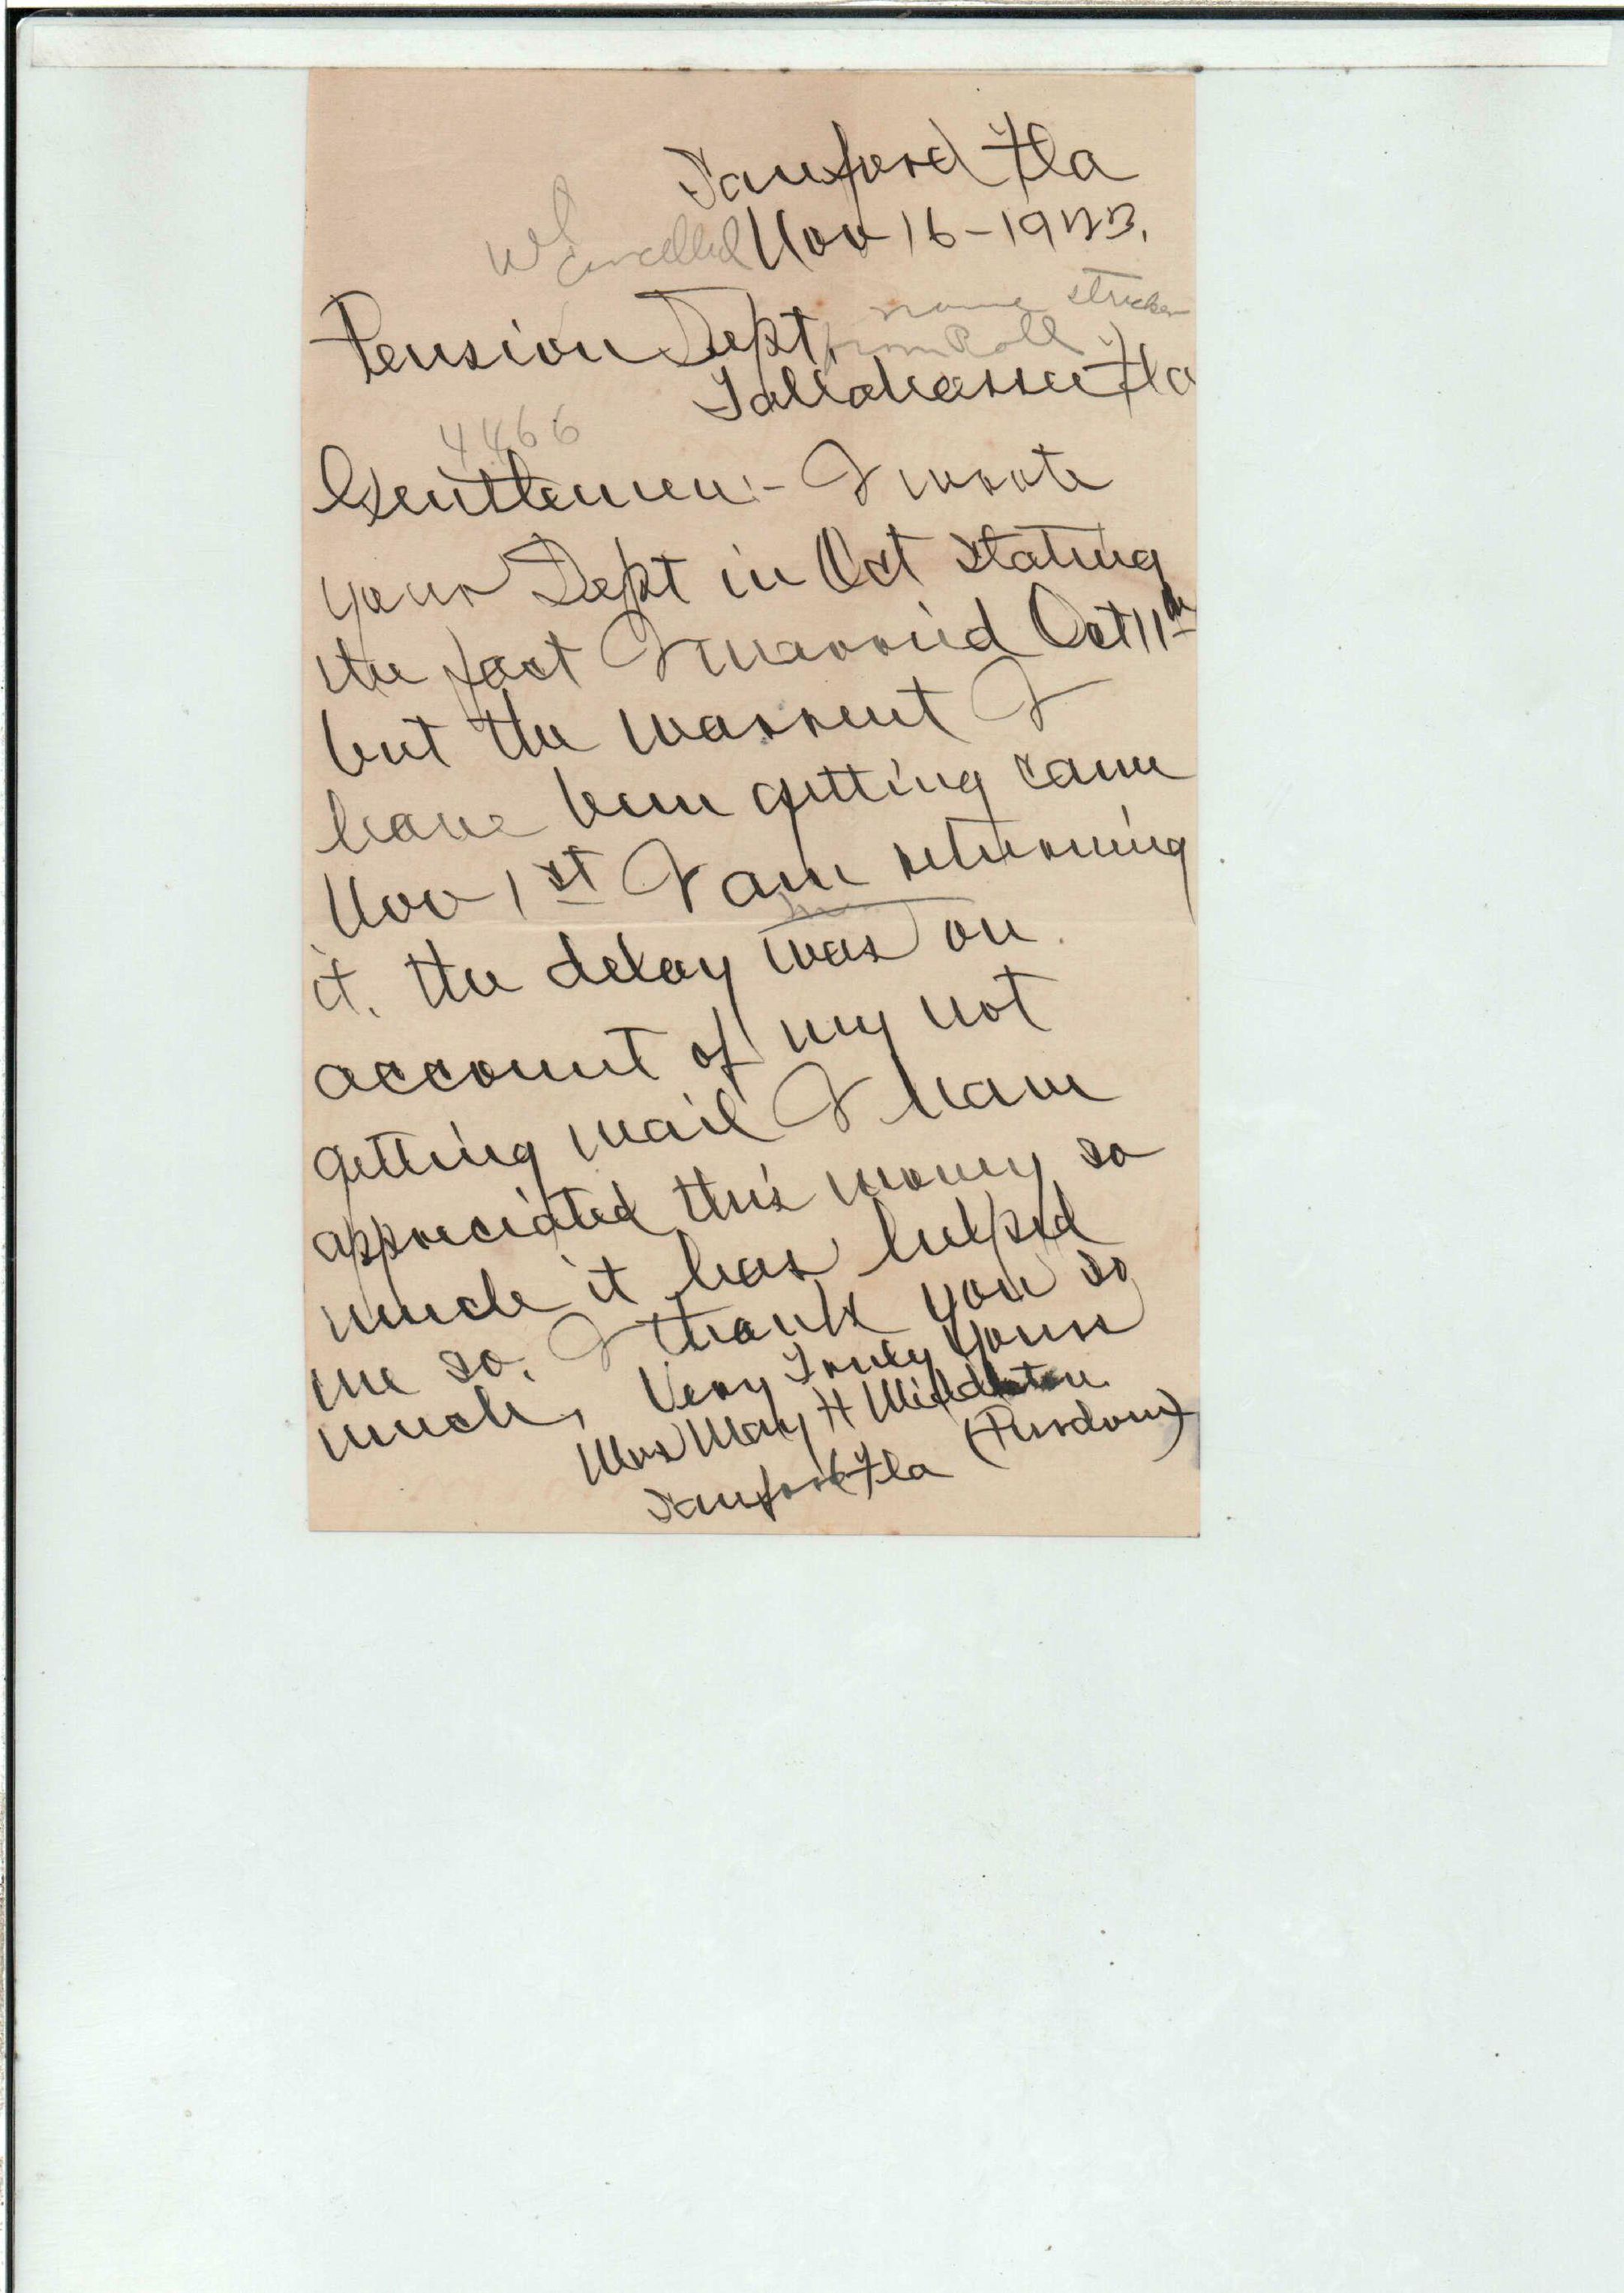 Sanford Fla
Cancelled Nov 16-1923.
name stricken
Pension Dept, from Roll
Tallahassee Fla
4466
Gentlemen:- I wrote
your Dept in Oct stating
the fact I married Oct 11th
but the warrent I
have been getting came
Nov 1st I am returning
it. the delay was on
account of my not
getting mail I have
appreciated this money so
much it has helped
me so. I thank you so
much, Very Truly Yours
Mrs Mary H Middleton
(Purdom)
Sanford Fla